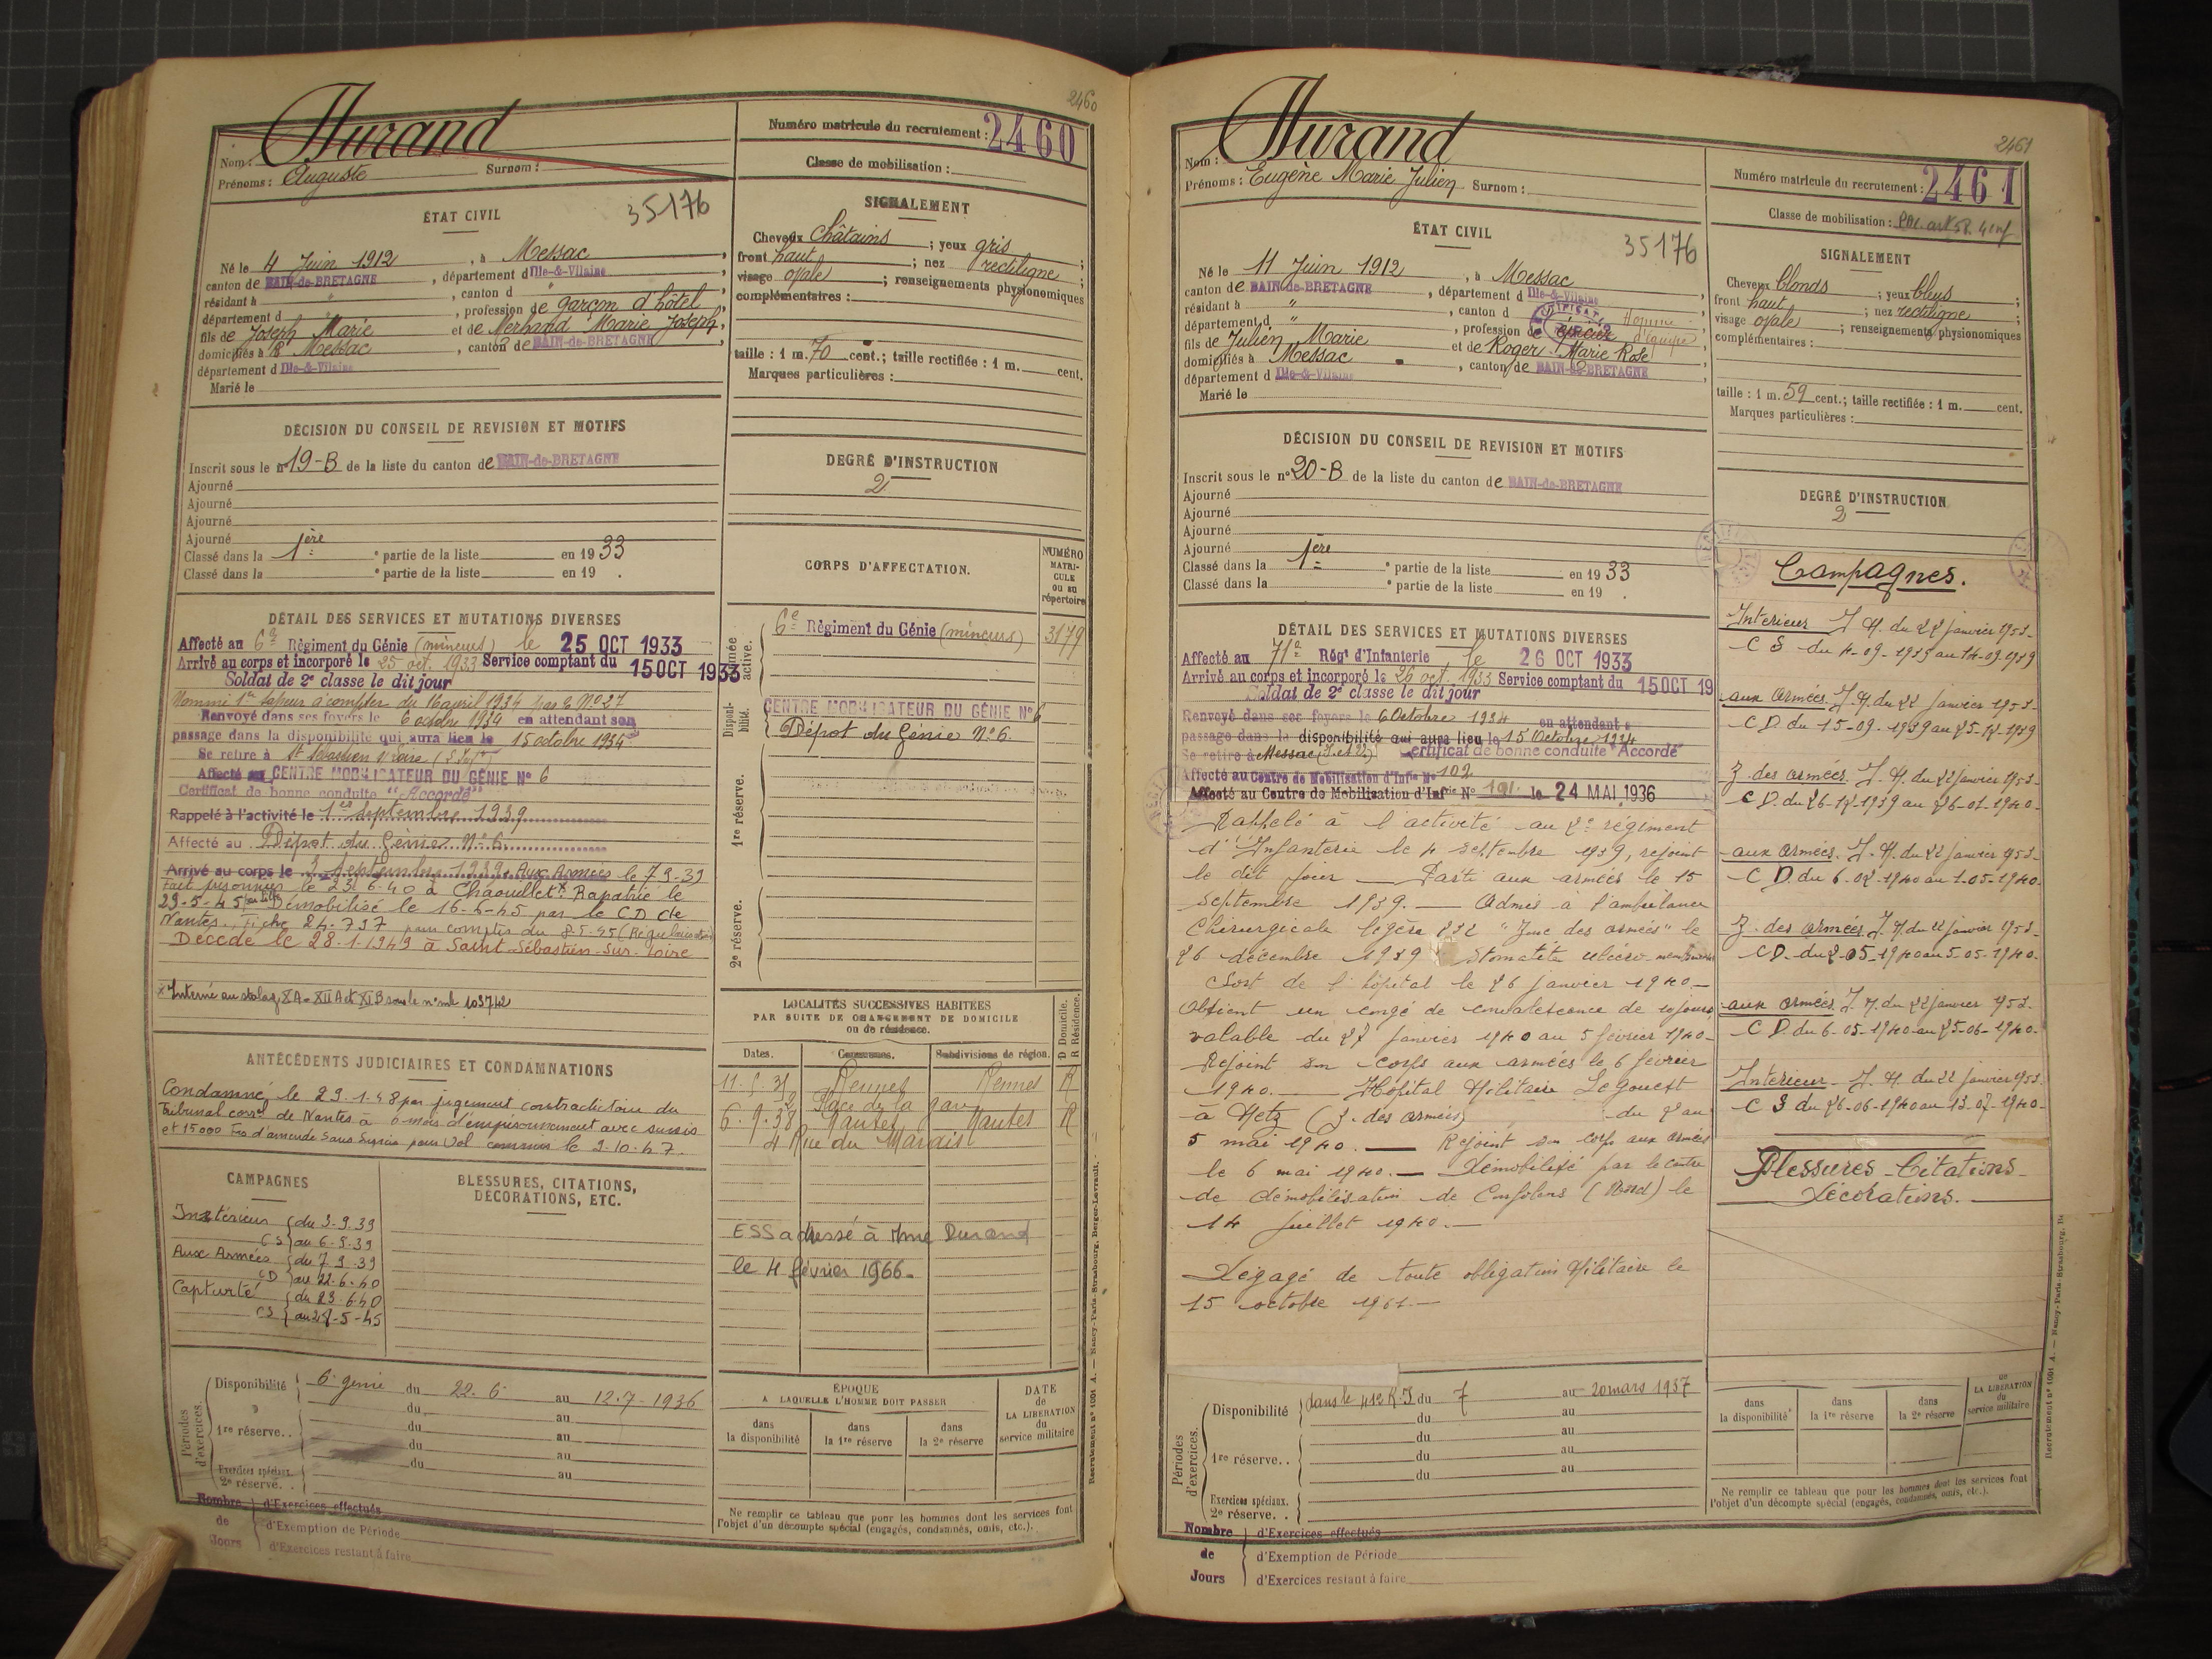 2460
Nom : Durand
Numéro matricule du recrutement : 2460
Prénoms : Auguste Surnom :
Classe de mobilisation :
ÉTAT CIVIL
35176
Né le 4 Juin 1912, à Messac
canton de BAIN-de-BRETAGNE, département d Ille-&-Vilaine,
résidant à " , canton d "
département d , profession de garçon d'hôtel,
fils de Joseph Marie et de Nerhand Marie Joseph,
domiciliés à Messac, canton de BAIN-de-BRETAGNE,
département d Ille-&-Vilaine
Marié le
SIGNALEMENT
Cheveux châtains ; yeux gris ;
front haut ; nez rectiligne ;
visage ovale ; renseignements physionomiques
complémentaires :
taille : 1 m. 70 cent.; taille rectifiée : 1 m. cent.
Marques particulières :
DÉCISION DU CONSEIL DE REVISION ET MOTIFS
Inscrit sous le n° 19-B de la liste du canton de BAIN-de-BRETAGNE
Ajourné
Ajourné
Ajourné
Ajourné
Classé dans la 1ère e partie de la liste en 1933
Classé dans la e partie de la liste en 19 .
DEGRÉ D'INSTRUCTION
2
DÉTAIL DES SERVICES ET MUTATIONS DIVERSES
Affecté au 6e Régiment du Génie (mineurs) le 25 OCT 1933
Arrivé au corps et incorporé le 25 oct. 1933 Service comptant du 15 OCT 1933
Soldat de 2e classe le dit jour
Nommé 1er sapeur à compter du 16 avril 1934 par o. N° 27
Renvoyé dans ses foyers le 6 octobre 1934 en attendant son
passage dans la disponibilité qui aura lieu le 15 octobre 1934
Se retire à St Sébastien s/ Loire (L. Infre)
Affecté au CENTRE MOBILISATEUR DU GÉNIE N° 6
Certificat de bonne conduite "Accordé"
Rappelé à l'activité le 1er Septembre 1939
Affecté au Dépôt du Génie N° 6.
Arrivé au corps le 3 Septembre 1939. Aux Armées le 7 9-39
Fait prisonnier le 23-6-40 à Chaouillet x Rapatrié le
29-5-45 Démobilisé le 16-6-45 par le CD de
Nantes. Fiche 24.737
Décédé le 28-1-1949 à Saint-Sébastien-sur-Loire
x Interné au stalag XA - XIIA et XIB sous le n° mle 103742
CORPS D'AFFECTATION.
NUMÉRO MATRICULE OU AU répertoire
Armée active.
6e Régiment du Génie (mineurs) 3179
Disponibilité.
CENTRE MOBILISATEUR DU GÉNIE N° 6
Dépôt du Génie N° 6.
1re réserve.
2e réserve.
LOCALITÉS SUCCESSIVES HABITÉES
PAR SUITE DE CHANGEMENT DE DOMICILE
ou de résidence.
D Domicile. R Résidence.
Dates. Communes. Subdivisions de région.
Rennes Rennes R
2 Place de la gare
6. 9. 38 Nantes Nantes R
4 Rue du Marais
ESS adressé à Mme Durand
le 4 février 1966.
ANTÉCÉDENTS JUDICIAIRES ET CONDAMNATIONS
Condamné le 29-1-48 par jugement contradictoire du
Tribunal corrl de Nantes à 6 mois d'emprisonnement avec sursis
et 15000 Frs d'amende sans sursis pour vol commis le 2-10-47.
CAMPAGNES
BLESSURES, CITATIONS, DÉCORATIONS, ETC.
Intérieur du 3-9-39
CS au 6-9-39
Aux Armées du 7.9.39
CD au 22-6-40
Captivité du 23-6-40
CS au 28-5-45
Périodes d'exercices.
Disponibilité 6e génie du 22. 6 au 12-7-1936
du au
1re réserve.. du au
du au
Exercices spéciaux. du au
2e réserve. .
Nombre de Jours
d'Exercices effectués
d'Exemption de Période
d'Exercices restant à faire
ÉPOQUE
A LAQUELLE L'HOMME DOIT PASSER
dans la disponibilité
dans la 1re réserve
dans la 2e réserve
DATE de LA LIBÉRATION du service militaire
Ne remplir ce tableau que pour les hommes dont les services font
l'objet d'un décompte spécial (engagés, condamnés, omis, etc.).
Recrutement n° 1001 A. — Nancy-Paris-Strasbourg, Berger-Levrault.
2461
Nom : Durand
Numéro matricule du recrutement : 2461
Prénoms : Eugène Marie Julien Surnom :
Classe de mobilisation :
ÉTAT CIVIL
35176
Né le 11 Juin 1912, à Messac
canton de BAIN-de-BRETAGNE, département d Ille-&-Vilaine,
résidant à " , canton d
département d " , profession de épicier Homme d'équipe,
fils de Julien Marie et de Roger Marie Rose,
domiciliés à Messac, canton de BAIN-de-BRETAGNE,
département d Ille-&-Vilaine
Marié le
SIGNALEMENT
Cheveux blonds ; yeux bleus ;
front haut ; nez rectiligne ;
visage ovale ; renseignements physionomiques
complémentaires :
taille : 1 m. 59 cent.; taille rectifiée : 1 m. cent.
Marques particulières :
DÉCISION DU CONSEIL DE REVISION ET MOTIFS
Inscrit sous le n° 20-B de la liste du canton de BAIN-de-BRETAGNE
Ajourné
Ajourné
Ajourné
Ajourné
Classé dans la 1ère e partie de la liste en 1933
Classé dans la e partie de la liste en 19 .
DEGRÉ D'INSTRUCTION
2
DÉTAIL DES SERVICES ET MUTATIONS DIVERSES
Affecté au 71e Régt d'Infanterie le 26 OCT 1933
Arrivé au corps et incorporé le 26 oct. 1933 Service comptant du 15 OCT 19
Soldat de 2e classe le dit jour
Renvoyé dans ses foyers le 6 Octobre 1934 en attendant s
passage dans la disponibilité qui aura lieu le 15 Octobre 1934
Se retire à Messac (I. et V.) Certificat de bonne conduite "Accordé"
Affecté au Centre de Mobilisation d'Infie N° 102
Affecté au Centre de Mobilisation d'Infrie N° 101 le 24 MAI 1936
Rappelé à l'activité au 2e régiment
d'Infanterie le 4 septembre 1939, rejoint
le dit jour — Parti aux armées le 15
septembre 1939. — Admis à l'ambulance
Chirurgicale légère 232 "Zone des armées" le
26 décembre 1939 Stomatite ulcéro-membraneuse
Sort de l'hôpital le 26 janvier 1940 —
Obtient un congé de convalescence de 10 jours
valable du 27 janvier 1940 au 5 février 1940 —
Rejoint son corps aux armées le 6 février
1940. — Hôpital Militaire Legouest
à Metz (Z. des armées) du 2 au
5 mai 1940. — Rejoint son corps aux armées
le 6 mai 1940. — Démobilisé par le centre
de démobilisation de Confolens le
14 juillet 1940. —
Dégagé de toute obligation Militaire le
15 octobre 1961. —
Campagnes.
Intérieur I. M. du 22 janvier 1953 -
C S du 4-09-1939 au 14-09-1939
aux Armées. I. M. du 22 janvier 1953 -
C D. du 15-09-1939 au 25-12-1939
Z. des armées. I. M. du 22 janvier 1953 -
C D. du 26-12-1939 au 26-01-1940 -
aux armées. I. M. du 22 janvier 1953 -
C D. du 6-02-1940 au 1-05-1940.
Z. des armées I. M. du 22 janvier 1953 -
C D. du 2-05-1940 au 5-05-1940.
aux armées I. M. du 22 janvier 1953 -
C D. du 6-05-1940 au 25-06-1940.
Intérieur I. M. du 22 janvier 1953.
C S du 26-06-1940 au 13-07-1940 -
Blessures - Citations -
Décorations. —
Périodes d'exercices.
Disponibilité dans le 412 R.I du 7 au 20 mars 1937
du au
du au
1re réserve. . du au
du au
Exercices spéciaux.
2e réserve. .
Nombre de Jours
d'Exercices effectués
d'Exemption de Période
d'Exercices restant à faire
dans la disponibilité
dans la 1re réserve
dans la 2e réserve
LA LIBÉRATION du service militaire
Ne remplir ce tableau que pour les hommes dont les services font
l'objet d'un décompte spécial (engagés, condamnés, omis, etc.).
Recrutement n° 1001 A. — Nancy-Paris-Strasbourg, B